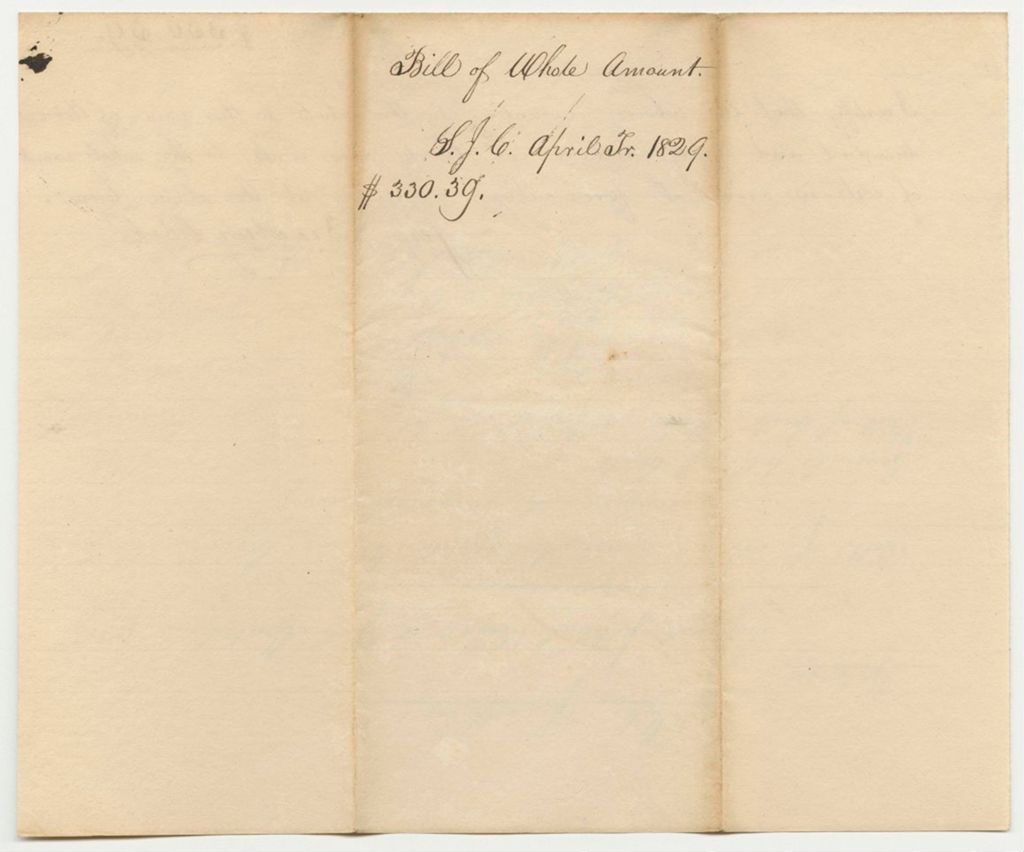 Bill of Whole Amount.
S. J. C. April Tr. 1829.
$ 330.39.